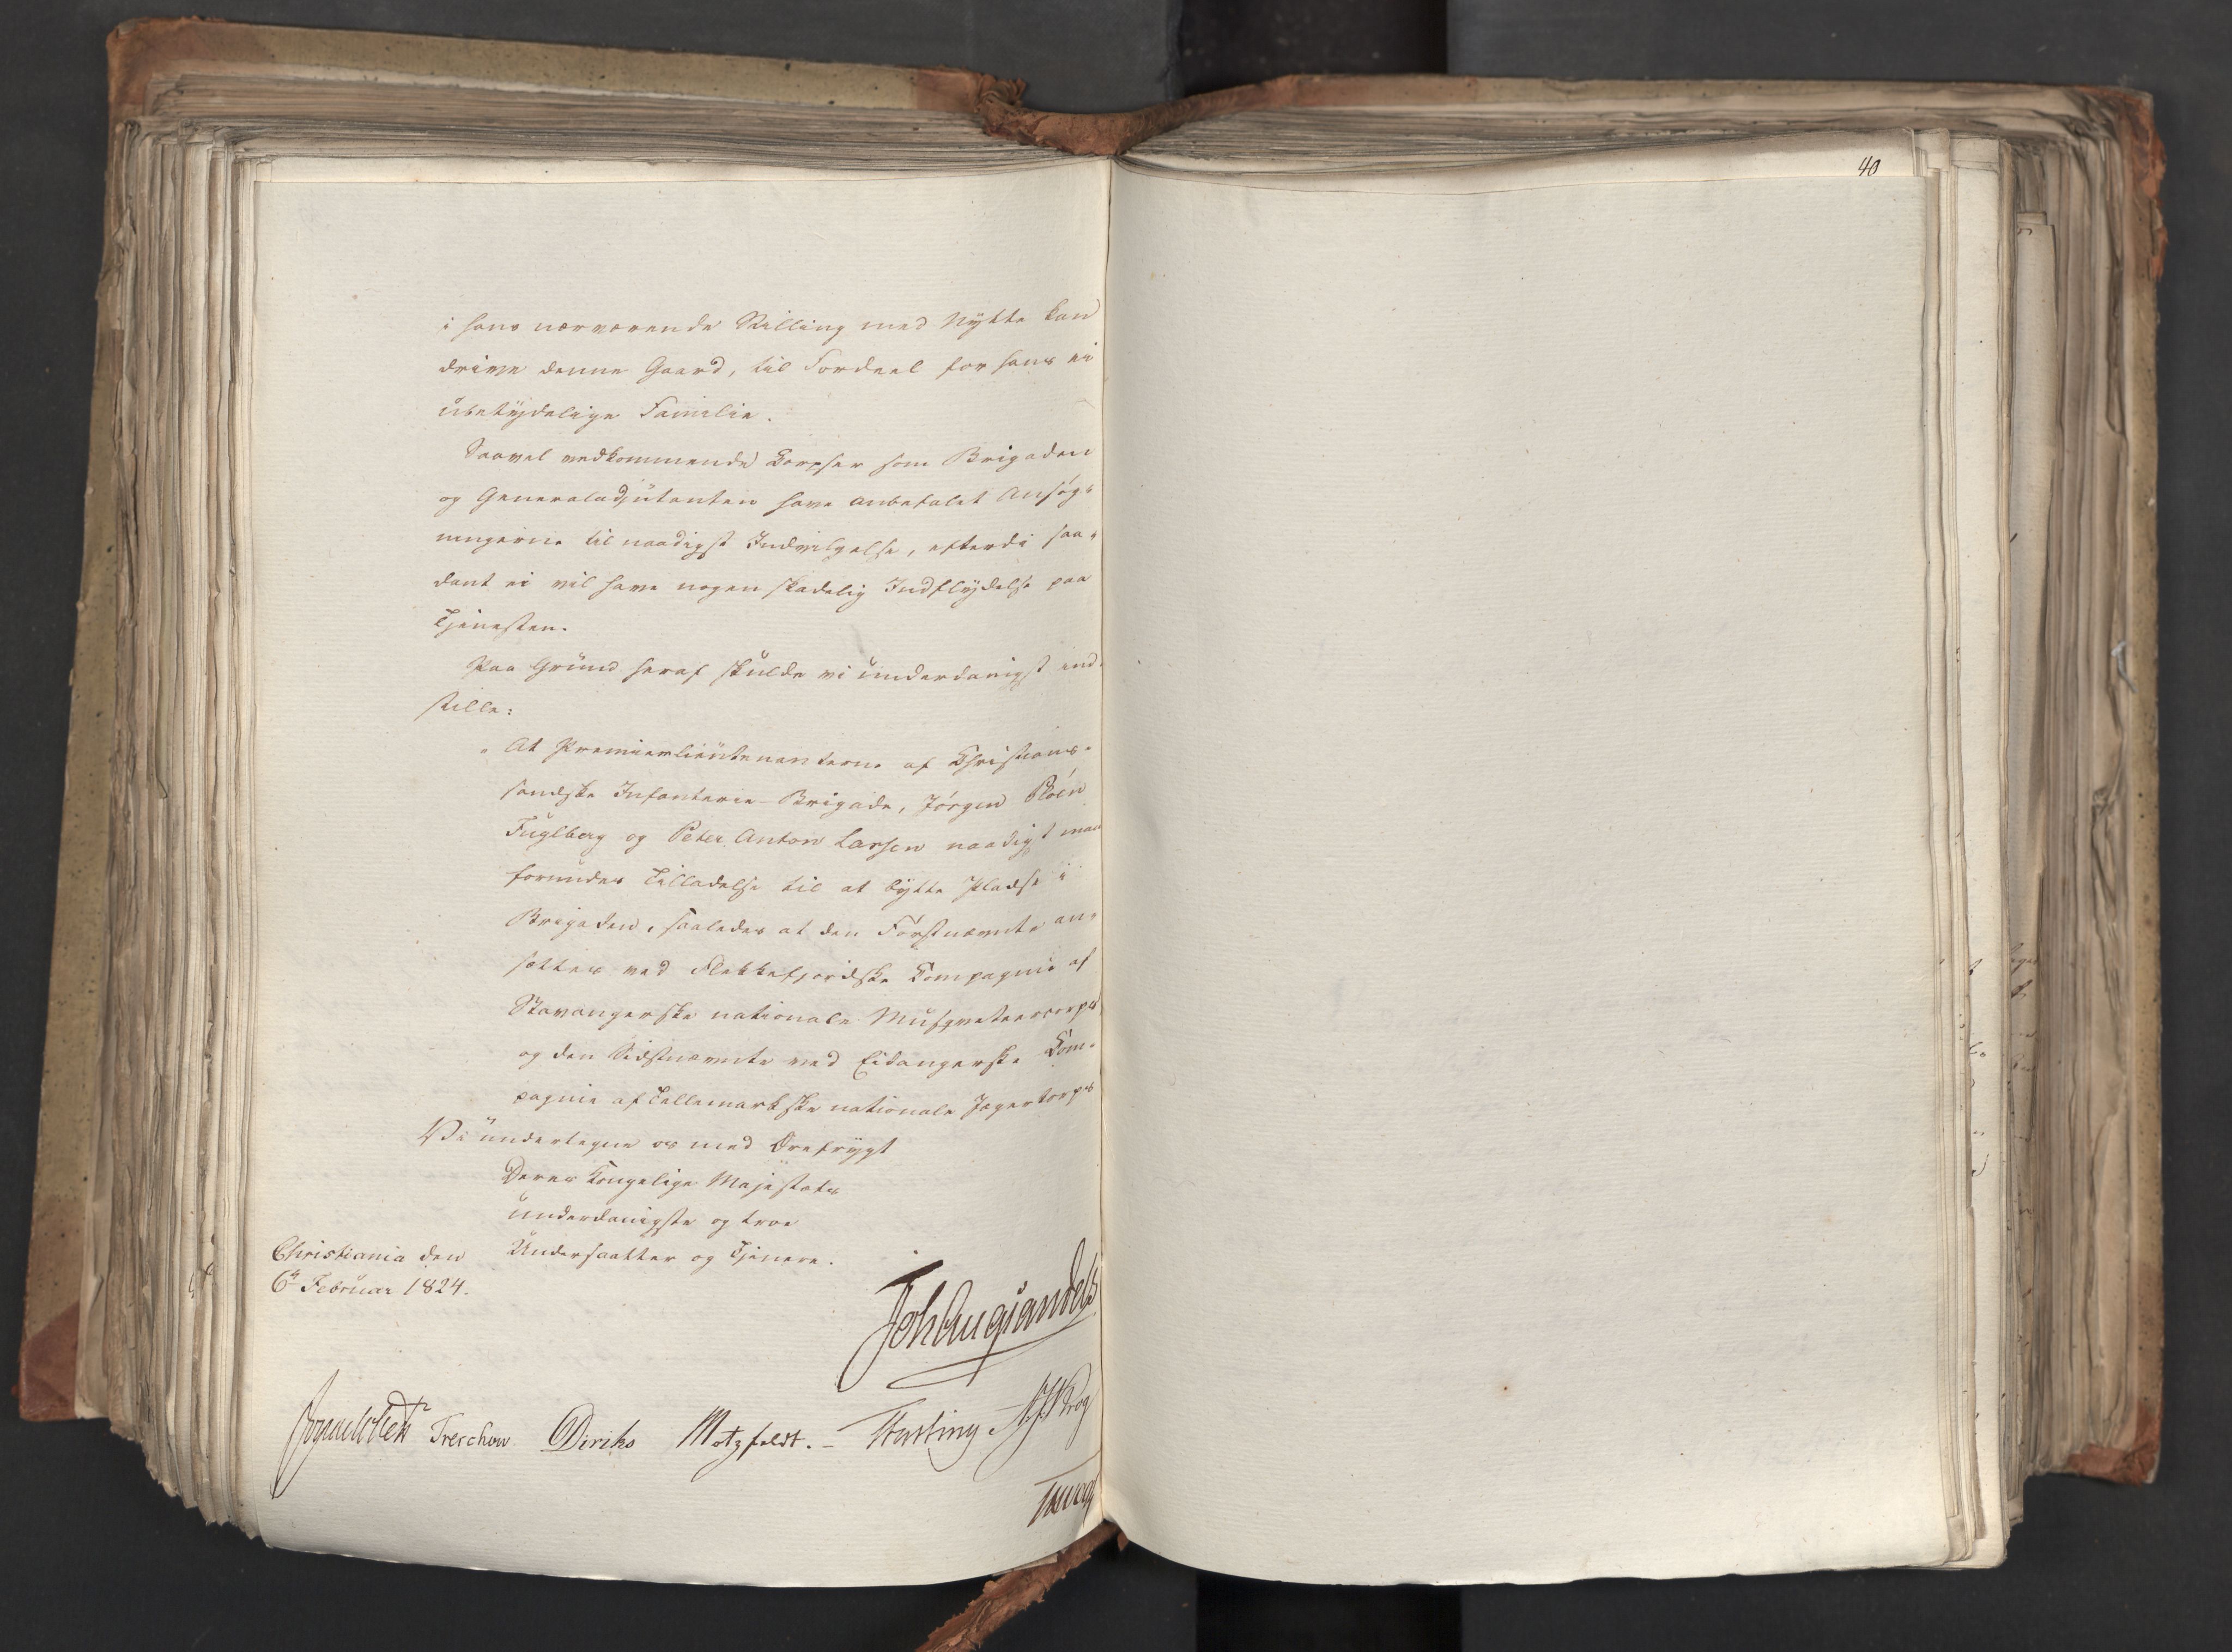 40
i hans nærværende Stilling med Nytte kan
drive denne Gaard, til Fordeel for hans ei
ubetÿdelige Familie.
Saavel vedkommende Corpser som Brigaden
og Generaladjutanten have anbefalet Ansøg-
ningerne til naadigst Indvilgelse, efterdi saa-
dant ei vil have nogen skadelig Indflÿdelse paa
Tjenesten.
Paa Grund heraf skulde vi underdanigst ind-
stille:
"At Premierlieutenanterne af Christians-
sandske Infanterie-Brigade, Jørgen
Fuglberg og Peter Anton Larsen naadigst maa
forundes Tilladelse til at bÿtte Plads i
Brigaden, saaledes at den Førstnævnte an-
sættes ved Flekkefjordske Compagnie af
Stavangerske nationale Musqveteercorps
og den Sidstnævnte ved Eidangerske Com-
pagnie af Tellemarkske nationale Jægerkorps
Vi undertegne os med Ærefrÿgt
Deres Kongelige Majestæts
underdanigste og troe
Undersaatter og Tjenere.
Christiania den
6te Februar 1824.
Joh Aug Sandels
Treschow Diriks Motzfeldt. – Fasting